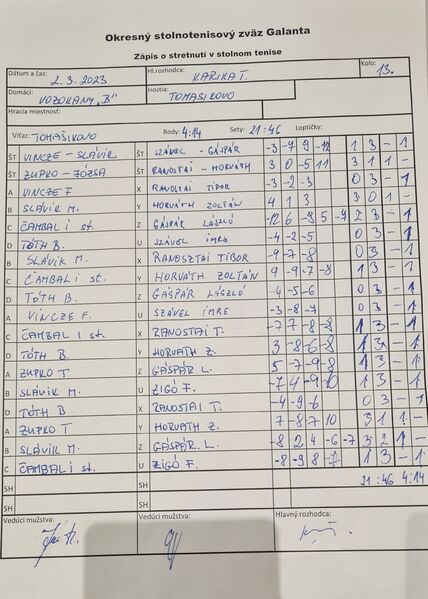 Okresný stolnotenisový zväz Galanta
Zápis o stretnutí v stolnom tenise
Dátum a čas: 2.3.2023 Hl.rozhodca: KARIKA T. Kolo: 13.
Domáci: VOZOKANY "B" Hostia: TOMASIKOVO
Hracia miestnosť:
Víťaz: TOMAŠIKOVO Body: 4:14 Sety: 21:46 Loptičky:
ŠT VINCZE - SLÁVIK ŠT SZÁVEL - GÁSPÁR -3 -7 9 -12 1 3 - 1
ŠT ZUPKO - JÓZSA ŠT RANOSTAI - HORVÁTH 3 0 -5 11 3 1 1 -
A VINCZE F X RANOSTAI TIBOR -3 -2 -3 0 3 - 1
B SLÁVIK M. Y HORVÁTH ZOLTÁN 4 1 3 3 0 1 -
C ČAMBAL I st. Z GÁSPÁR LÁSZLÓ -12 6 -9 5 -7 2 3 - 1
D TÓTH B. U SZÁVEL IMRE -4 -2 -5 0 3 - 1
B SLÁVIK M. X RANOSZTAI TIBOR -9 -7 -8 0 3 - 1
C ČAMBAL I st. Y HORVÁTH ZOLTÁN 9 -9 -7 -8 1 3 - 1
D TÓTH B. Z GÁSPÁR LÁSZLÓ -4 -5 -6 0 3 - 1
A VINCZE F. U SZÁVEL IMRE -3 -8 -7 0 3 - 1
C ČAMBAL I st. X RANOSTAI T. -7 7 -8 -8 1 3 - 1
D TÓTH B. Y HORVÁTH Z. 3 -8 -6 -8 1 3 - 1
A ZUPKO T Z GÁSPÁR L. 5 -7 -9 -8 1 3 - 1
B SLÁVIK M. U ZIGÓ F. -7 4 -9 -10 1 3 - 1
D TÓTH B X RANOSTAI T. -4 -9 -6 0 3 - 1
A ZUPKO T Y HORVÁTH Z. 7 -8 7 10 3 1 1 -
B SLÁVIK M. Z GÁSPÁR L. -8 2 4 -6 -7 3 2 1 -
C ČAMBAL I st. U ZIGÓ F. -8 -9 8 -7 1 3 - 1
SH SH 21:46 4:14
SH SH
Vedúci mužstva: Vedúci mužstva: Hlavný rozhodca: